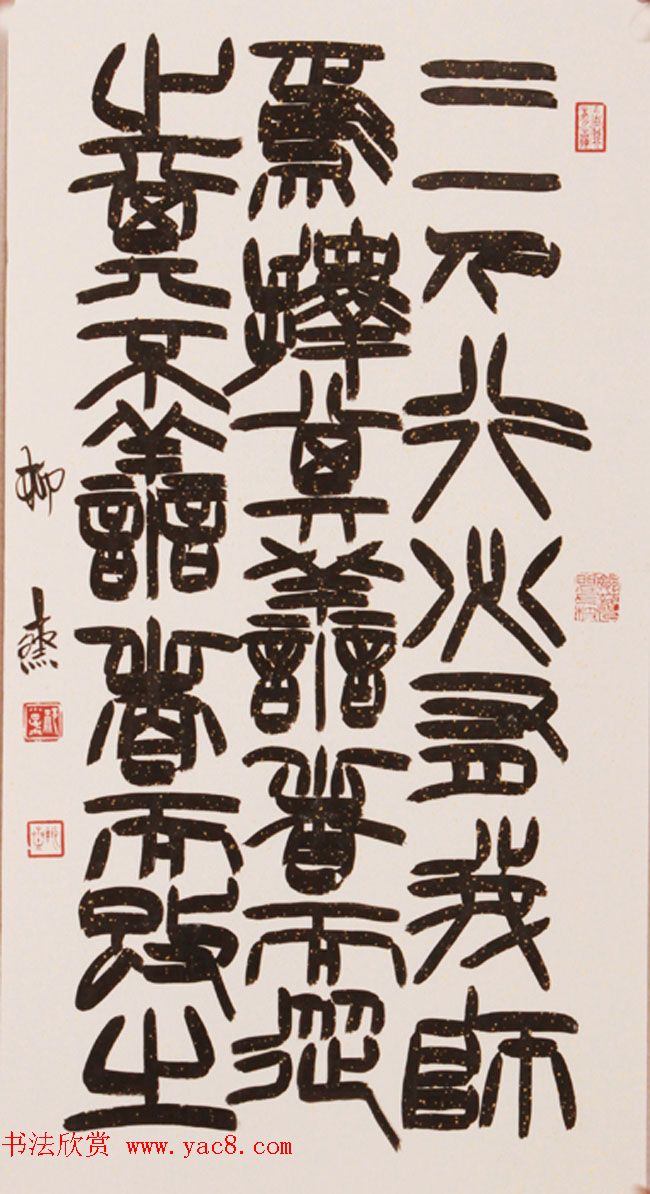 三人行必有我師
焉擇其善者而從
之其不善者而改之
书法欣赏 www.yac8.com